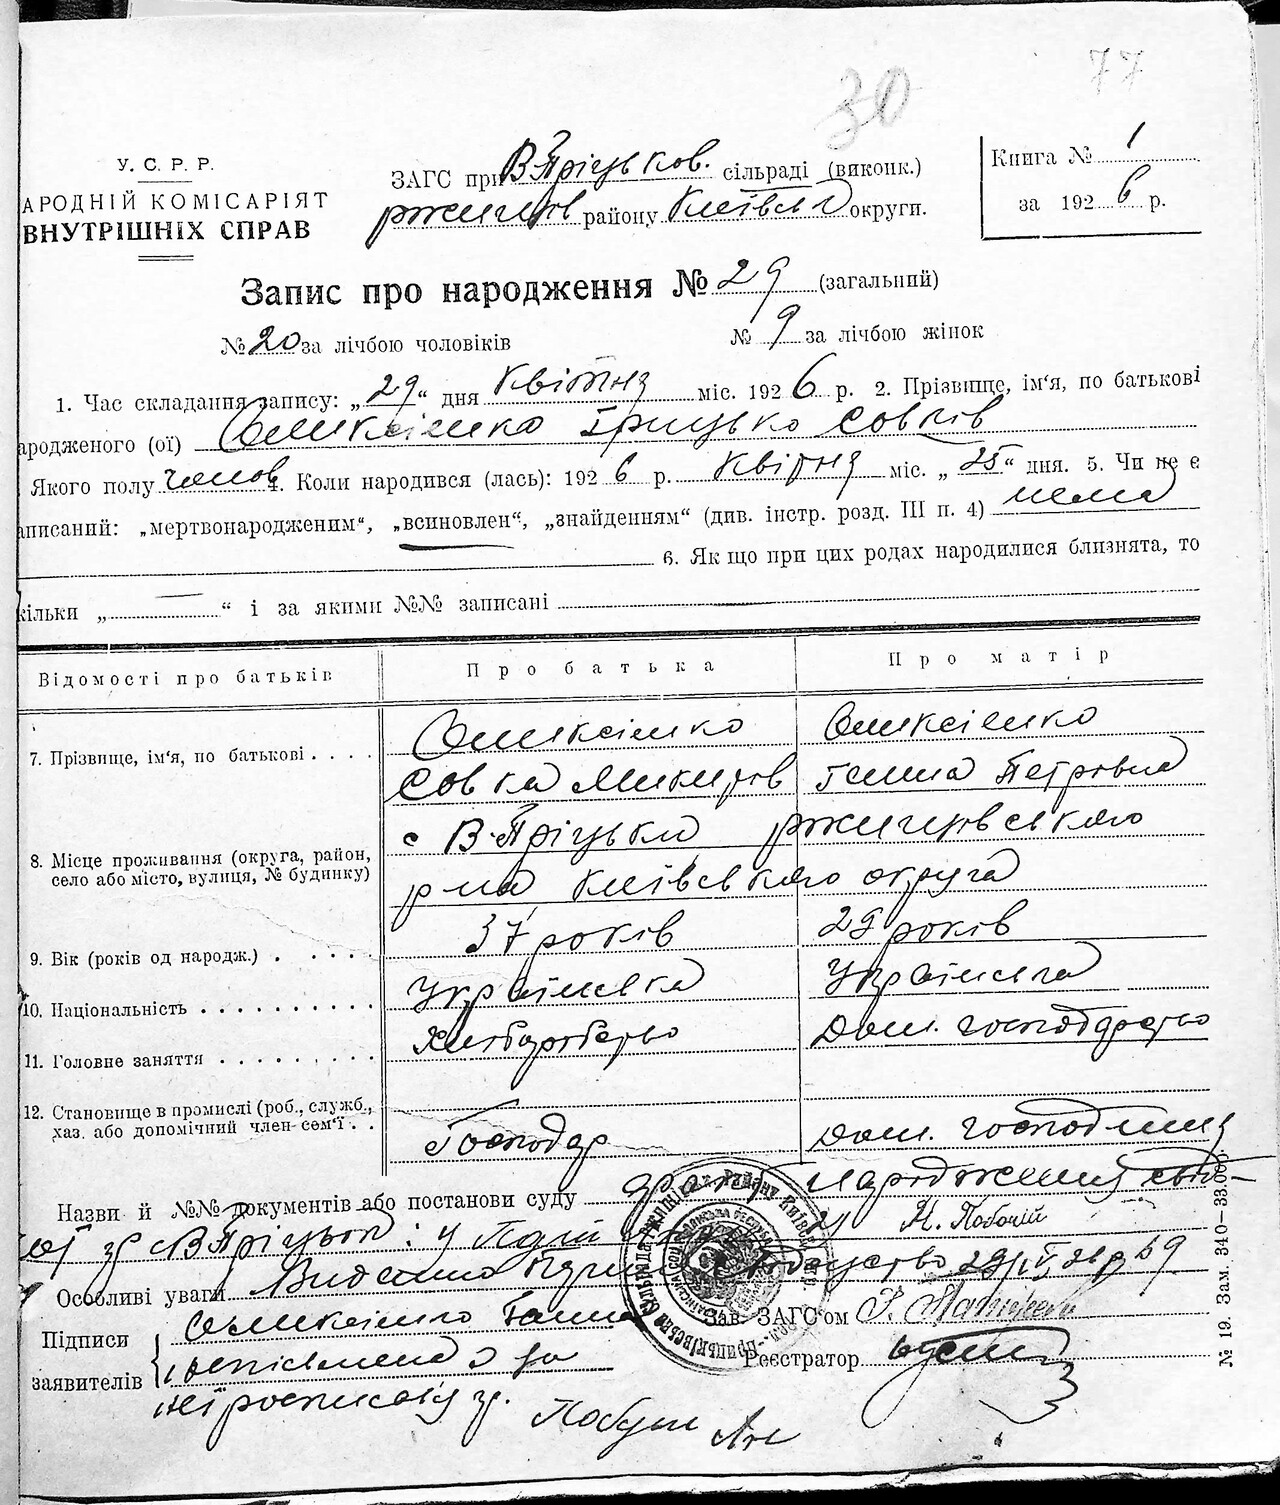 77
30
У. С. Р. Р.
АРОДНІЙ КОМІСАРІЯТ
ВНУТРІШНІХ СПРАВ
ЗАГС при В Пріцьков. сільраді (виконк.)
ржищев району Київськ округи.
Книга № 1
за 1926 р.
Запис про народження № 29 (загальний)
№ 20 за лічбою чоловіків № 9 за лічбою жінок
1. Час складання запису: „29“ дня Квітня міс. 1926 р. 2. Прізвище, ім‘я, по батькові
ародженого (ої) Оликсієнко Грицько Совків
Якого полу чолов. 4. Коли народився (лась): 1926 р. Квітня міс. „25“ дня. 5. Чи не є
аписаний: „мертвонародженим“, „всиновлен“, „знайденням“ (див. інстр. розд. III п. 4) нема
6. Як що при цих родах народилися близнята, то
кільки „ — “ і за якими №№ записані
Відомості про батьків Про батька Про матір
7. Прізвище, ім‘я, по батькові . . . . Оликсієнко Оликсієнко
Совка Микитов Ганна Петровна
8. Місце проживання (округа, район, село або місто, вулиця, № будинку) с В-Пріцьки ржищовського
р на Київського округа
9. Вік (років од народж.) . . . . . 37 років 29 років
10. Національність . . . . . . . . . . Українська Українська
11. Головне заняття . . . . . . . . . Хліборобство Дом. господарство
12. Становище в промислі (роб., служб., хаз. або допомічний член-сем‘ї . . Господар Дом. господиня
Назви й №№ документів або постанови суду народження
Н. Побочій
Особливі уваги Видано
Підписи Оликсієнко Ганна
заявителів неписьмена а за
неї росписавсь гр.
Зав. ЗАГС‘ом
Реєстратор
№ 19. Зам. 340—33.000.